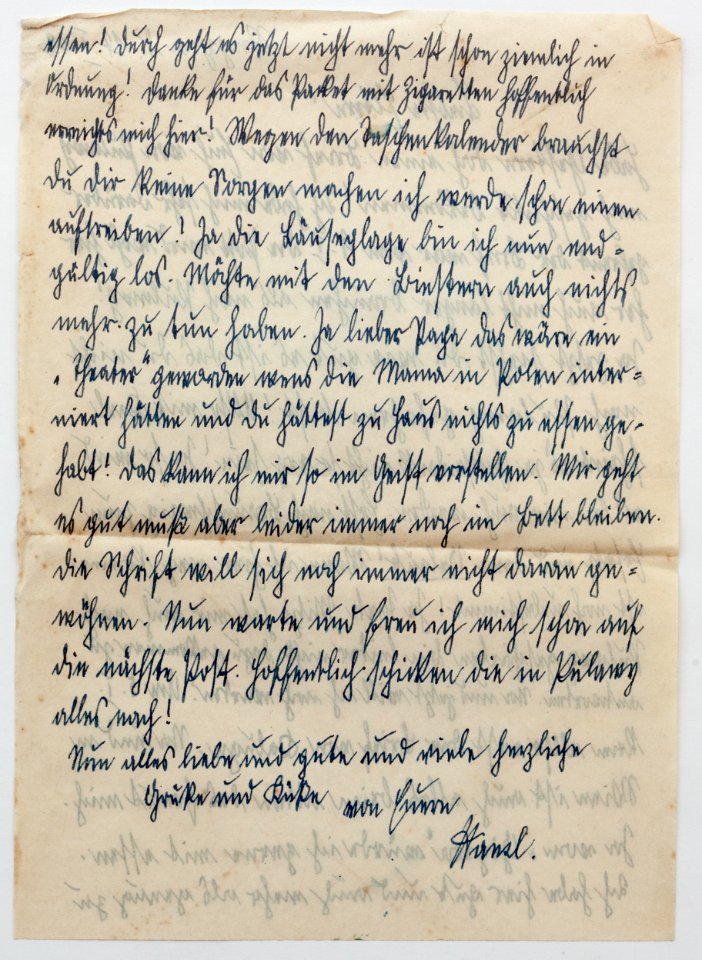 essen! Durch geht es jetzt nicht mehr ist schon ziemlich in
Ordnung! Danke für das Packet mit Zigaretten hoffentlich
erreichts mich hier! Wegen den Taschenkalender brauchst
Du Dir keine Sorgen machen ich werde schon einen
auftreiben! Ja die Läuseplage bin ich nun end=
gültig los. Möchte mit den Biestern auch nichts
mehr zu tun haben. Ja lieber Papa das wäre ein
„Theater" geworden wens die Mama in Polen inter=
niert hätten und Du hättest zu Haus nichts zu essen ge=
habt! Das kann ich mir so im Geist vorstellen. Mir geht
es gut muß aber leider immer noch im Bett bleiben.
Die Schrift will sich noch immer nicht daran ge=
wöhnen. Nun warte und freu ich mich schon auf
die nächste Post. Hoffentlich schicken die in Pulawy
alles nach!
Nun alles liebe und gute und viele herzliche
Grüße und Küße von Euern